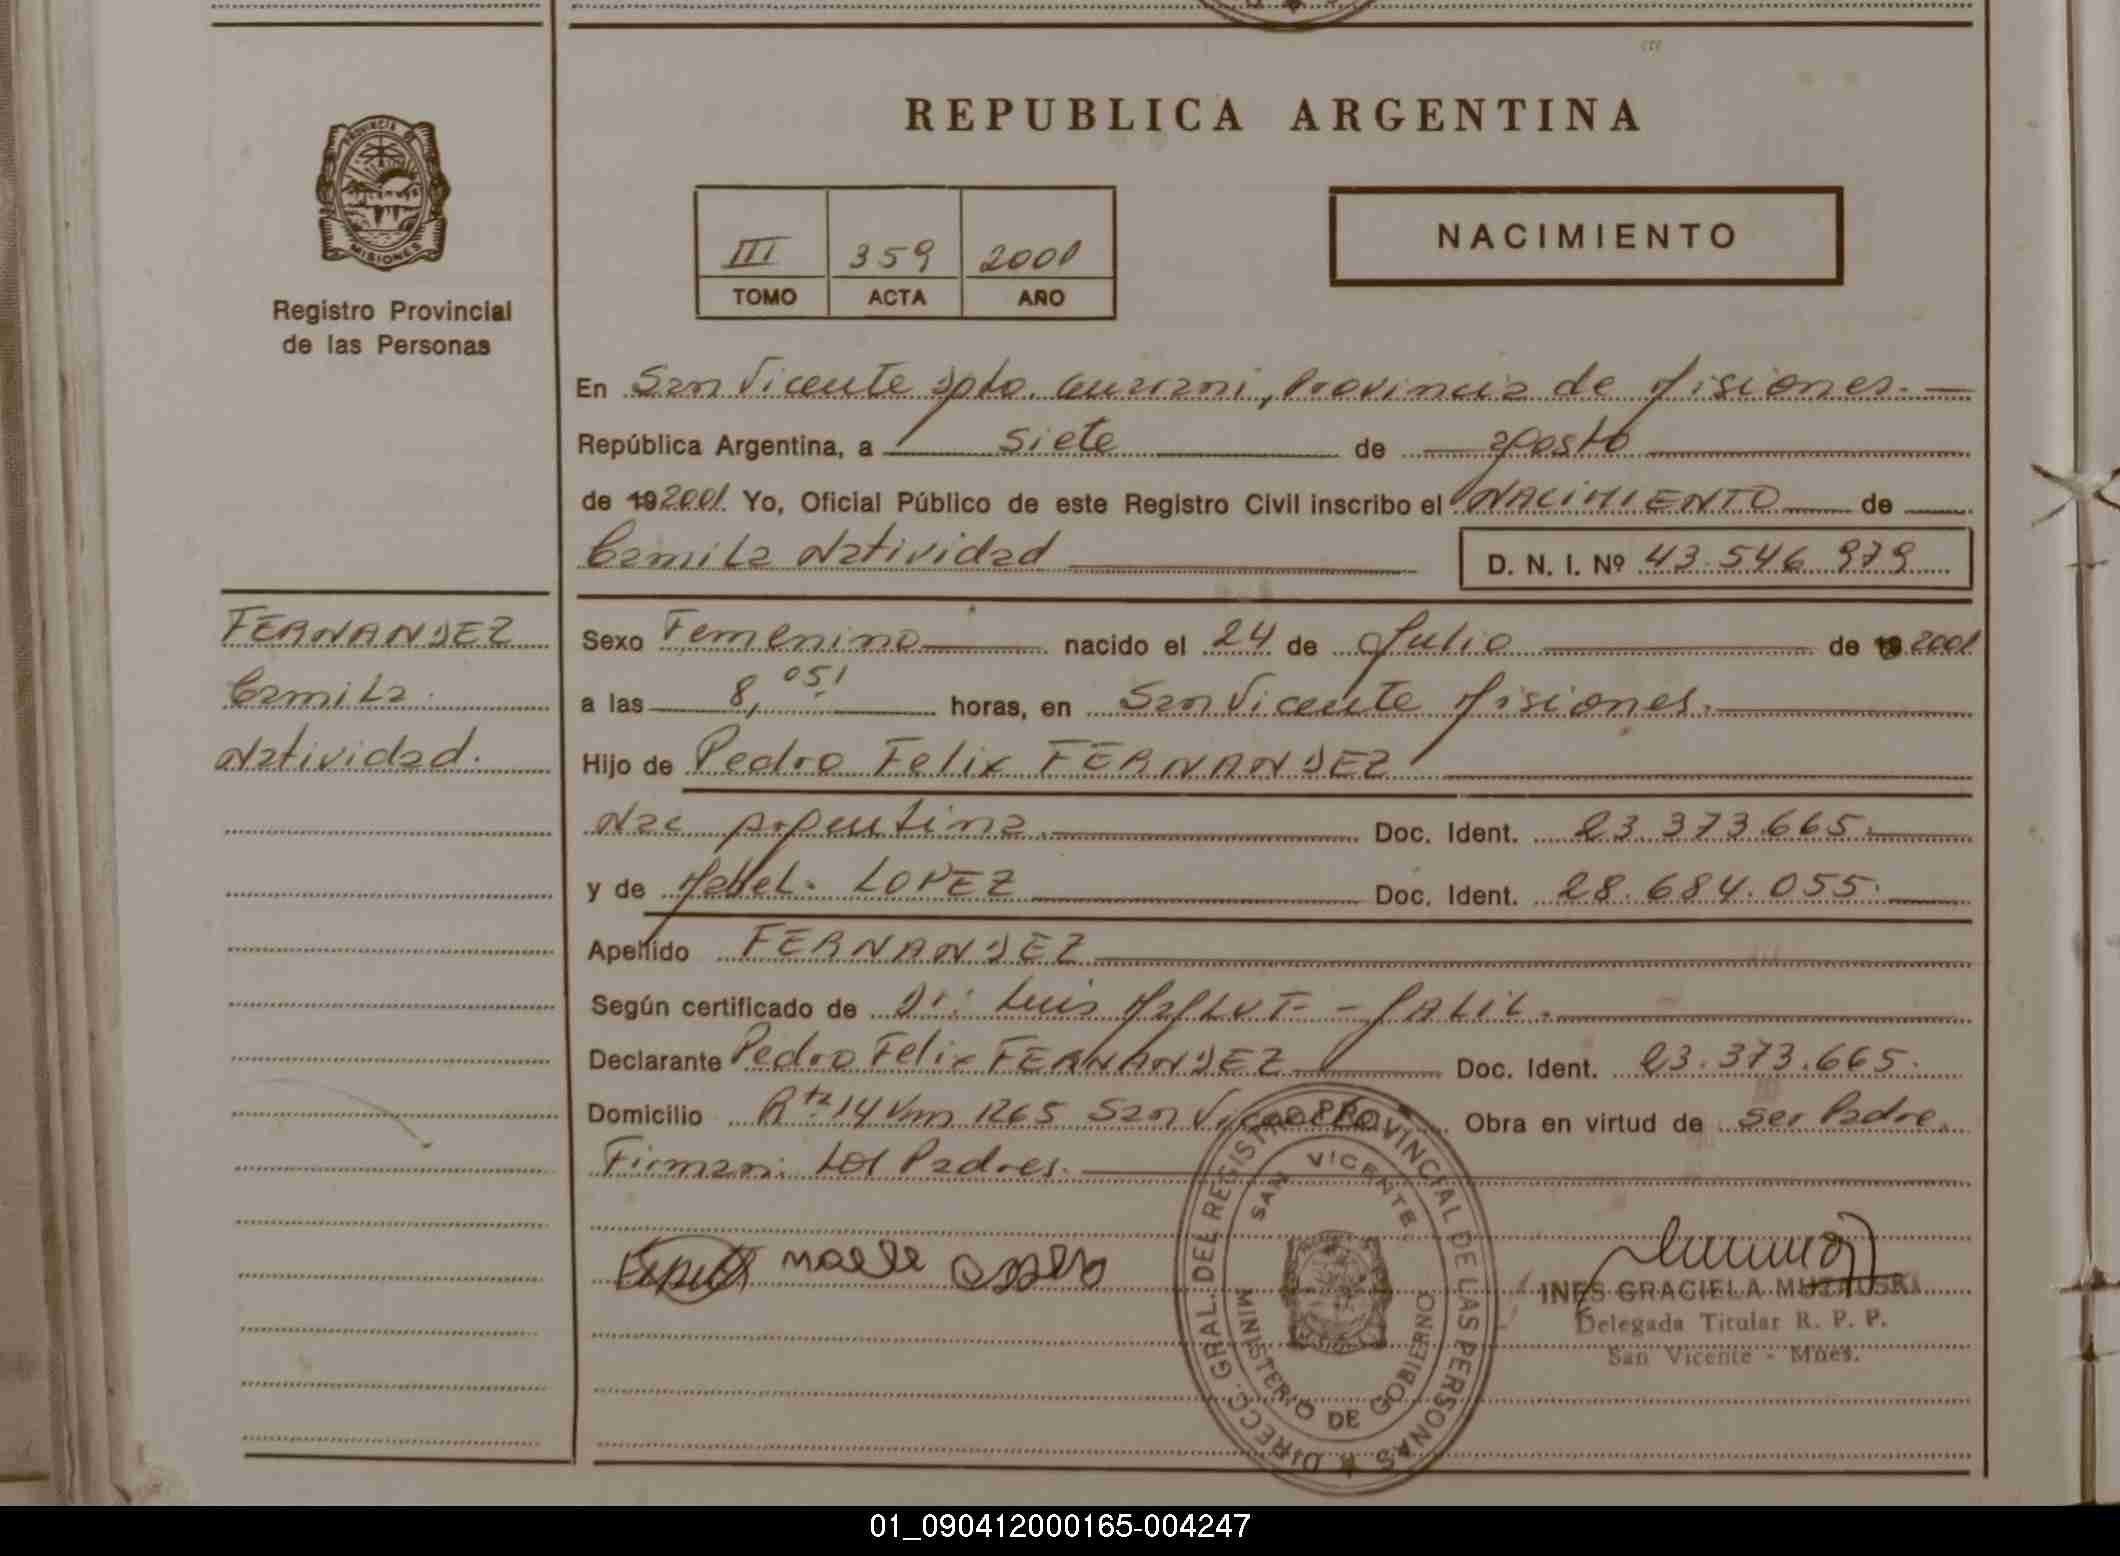 REPUBLICA ARGENTINA
PROVINCIA DE MISIONES
Registro Provincial
de las Personas
III 359 2001
TOMO ACTA AÑO
NACIMIENTO
En San Vicente Dpto. Guarani, Provincia de Misiones.
República Argentina, a siete de agosto
de 19 2001. Yo, Oficial Público de este Registro Civil inscribo el NACIMIENTO de
Camila Natividad D. N. I. Nº 43.546.979
FERNANDEZ
Camila.
Natividad.
Sexo Femenino nacido el 24 de Julio de 19 2001
a las 8,05' horas, en San Vicente Misiones.
Hijo de Pedro Felix FERNANDEZ
Nac Argentina. Doc. Ident. 23.373.665.
y de Mabel. LOPEZ Doc. Ident. 28.684.055.
Apellido FERNANDEZ
Según certificado de Dr: Luis
Declarante Pedro Felix FERNANDEZ Doc. Ident. 23.373.665.
Domicilio Rta 14 Km 1265 San Vicente Obra en virtud de ser Padre.
Firman: Los Padres.
DIRECC. GRAL. DEL REGISTRO PROVINCIAL DE LAS PERSONAS
SAN VICENTE
MINISTERIO DE GOBIERNO
INES GRACIELA
Delegada Titular R. P. P.
San Vicente - Mnes.
01_090412000165-004247